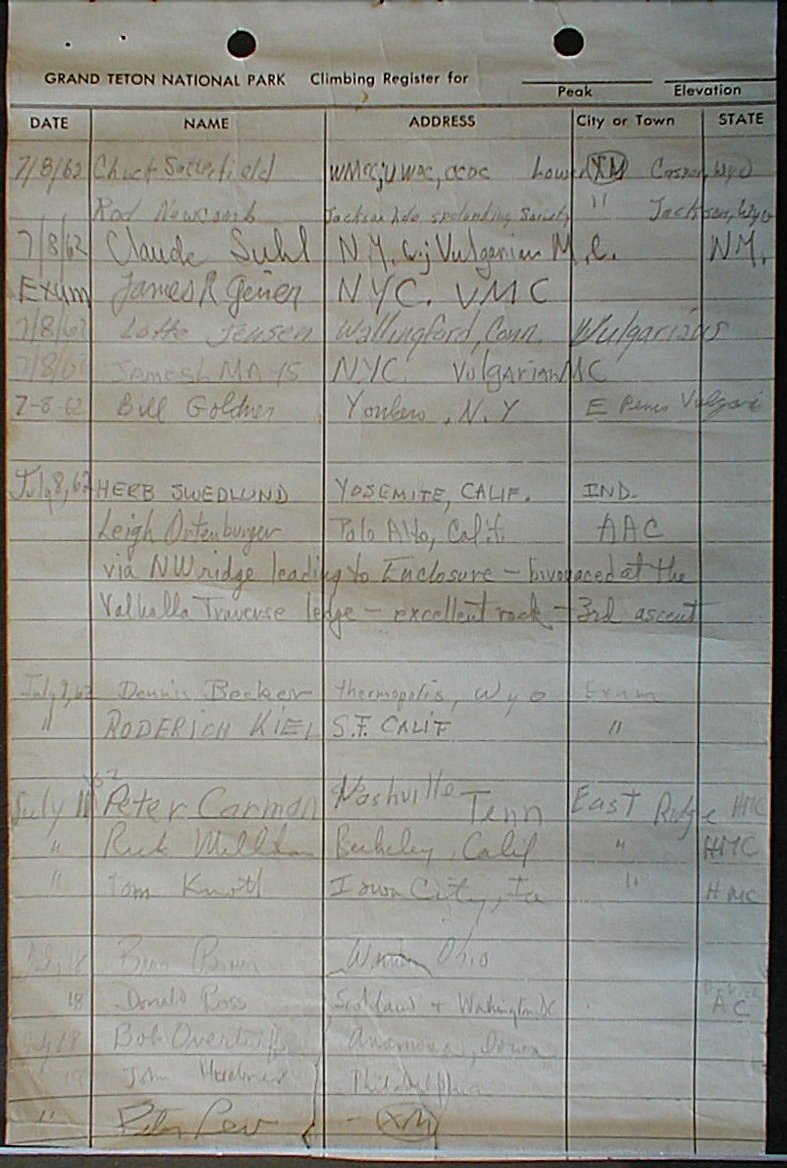 GRAND TETON NATIONAL PARK Climbing Register for
Peak Elevation
DATE NAME ADDRESS City or Town STATE
7/8/62 Chuck Satterfield Lower XM Casper, Wyo
Rod Newcomb Jackson hole Society " Jackson, Wyo
7/8/62 Claude Suhl N.Y. Vulgarian M.C. N.Y.
Exum James R Geiser NYC. VMC
7/8/62 Lotte Jensen Wallingford, Conn. Wulgarians
7/8/62 James L MAYS N.Y.C. VulgarianMC
7-8-62 Bill Goldner Yonkers, N.Y E
July 8, 62 HERB SWEDLUND YOSEMITE, CALIF. IND.
Leigh Ortenburger Palo Alto, Calif. AAC
via NW ridge leading to Enclosure - bivouaced at the
Valhalla Traverse ledge - excellent rock - 3rd ascent
July 9, 62 Dennis Becker Thermopolis, Wyo Exum
" RODERICH KIEL S.F. CALIF "
July 11 '62 Peter Carman Nashville Tenn East Ridge HMC
" Rick Berkeley, Calif " HMC
" Tom Iowa City, Ia " HMC
July 18 Ohio
18 Donald Ross Scotland + Washington DC AC
July 18 Bob Anamosa, Iowa
John Philadelphia
" XM